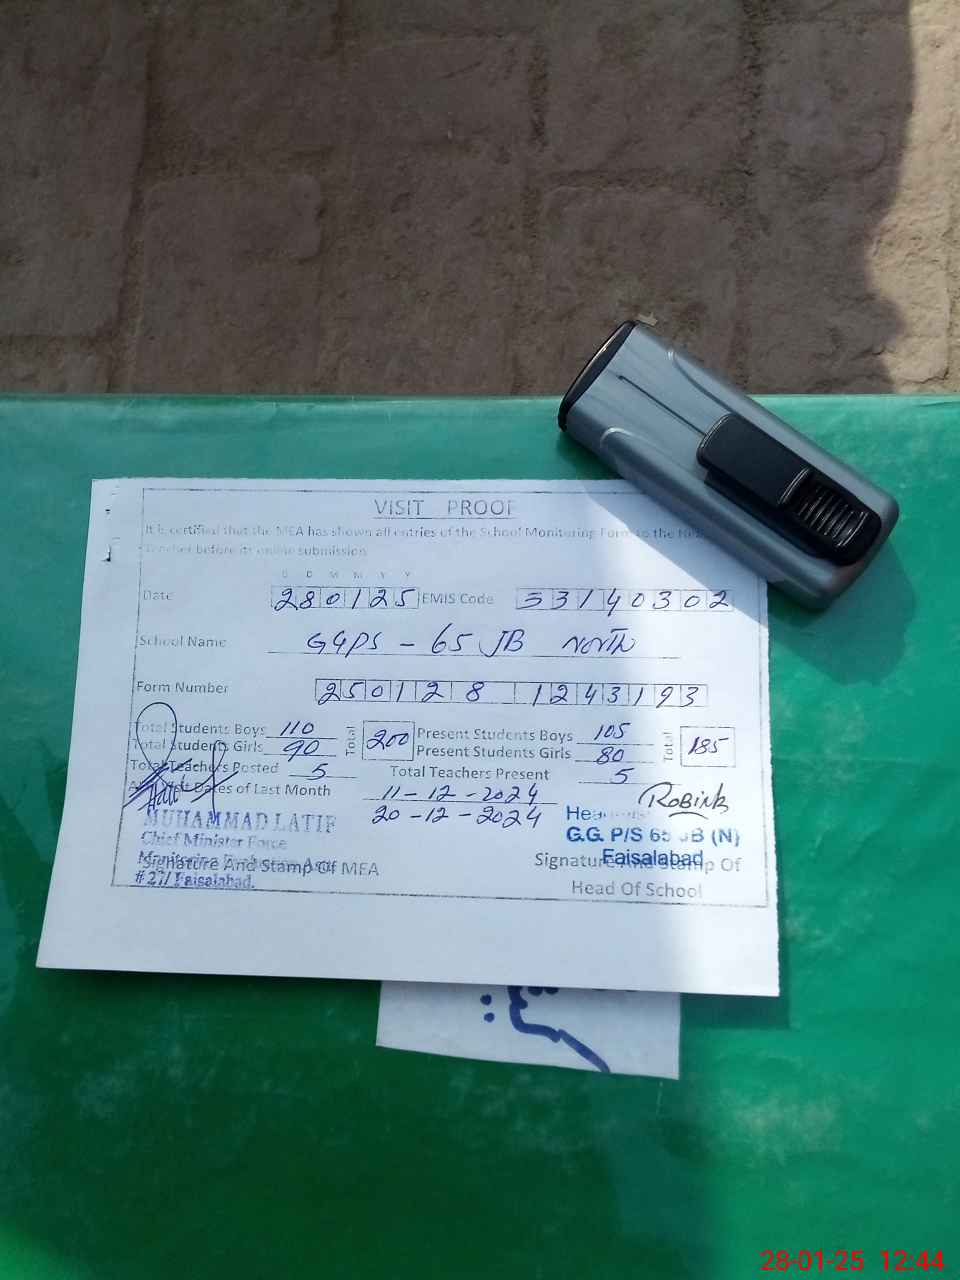 VISIT PROOF
It is certified that the MEA has shown all entries of the School Monitoring Form to the Head
Teacher before its online submission
D D M M Y Y
Date 280125 EMIS Code 33140302
School Name GGPS - 65 JB North
Form Number 250128 1243193
Total Students Boys 110 Total 200 Present Students Boys 105 Total 185
Total Students Girls 90 Present Students Girls 80
Total Teachers Posted 5 Total Teachers Present 5
Dates of Last Month 11-12-2024
20-12-2024
ROBINA
MUHAMMAD LATIF
Chief Minister Force
Monitoring
# 27/ Faisalabad.
Signature And Stamp Of MEA
G.G. P/S 65 JB (N)
Faisalabad
Signature And Stamp Of
Head Of School
28-01-25 12:44